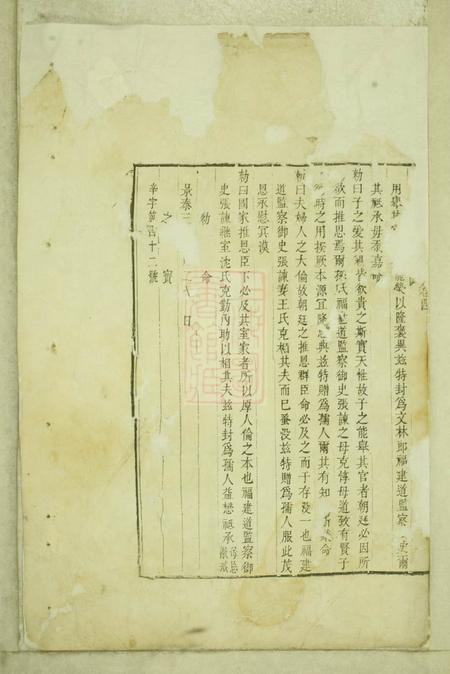 用 以隆褒異兹特封為文林郎福建道監察 史爾
其祗承毋忝嘉命
勑曰子之愛其親皆欲貴之斯實天性故子之能舉其官者朝廷必因所
欲而推恩焉爾 氏福建道監察御史張諫之母克惇母道致有賢子
時之用揆厥本源宜隆 典兹特贈為孺人爾其有知 命
勑曰夫婦人之大倫故朝廷之推恩群臣命必及之而于存没一也福建
道監察御史張諫妻王氏克相其夫而已蚤没兹特贈為孺人服此茂
恩永慰冥漠
勑曰國家推恩臣下必及其室家者所以厚人倫之本也福建道監察御
史張諫繼室沈氏克勤內助以相其夫兹特封為孺人益懋祗承毋怠敬戒
勑命
景泰三 日
之寶
辛字第四十二號